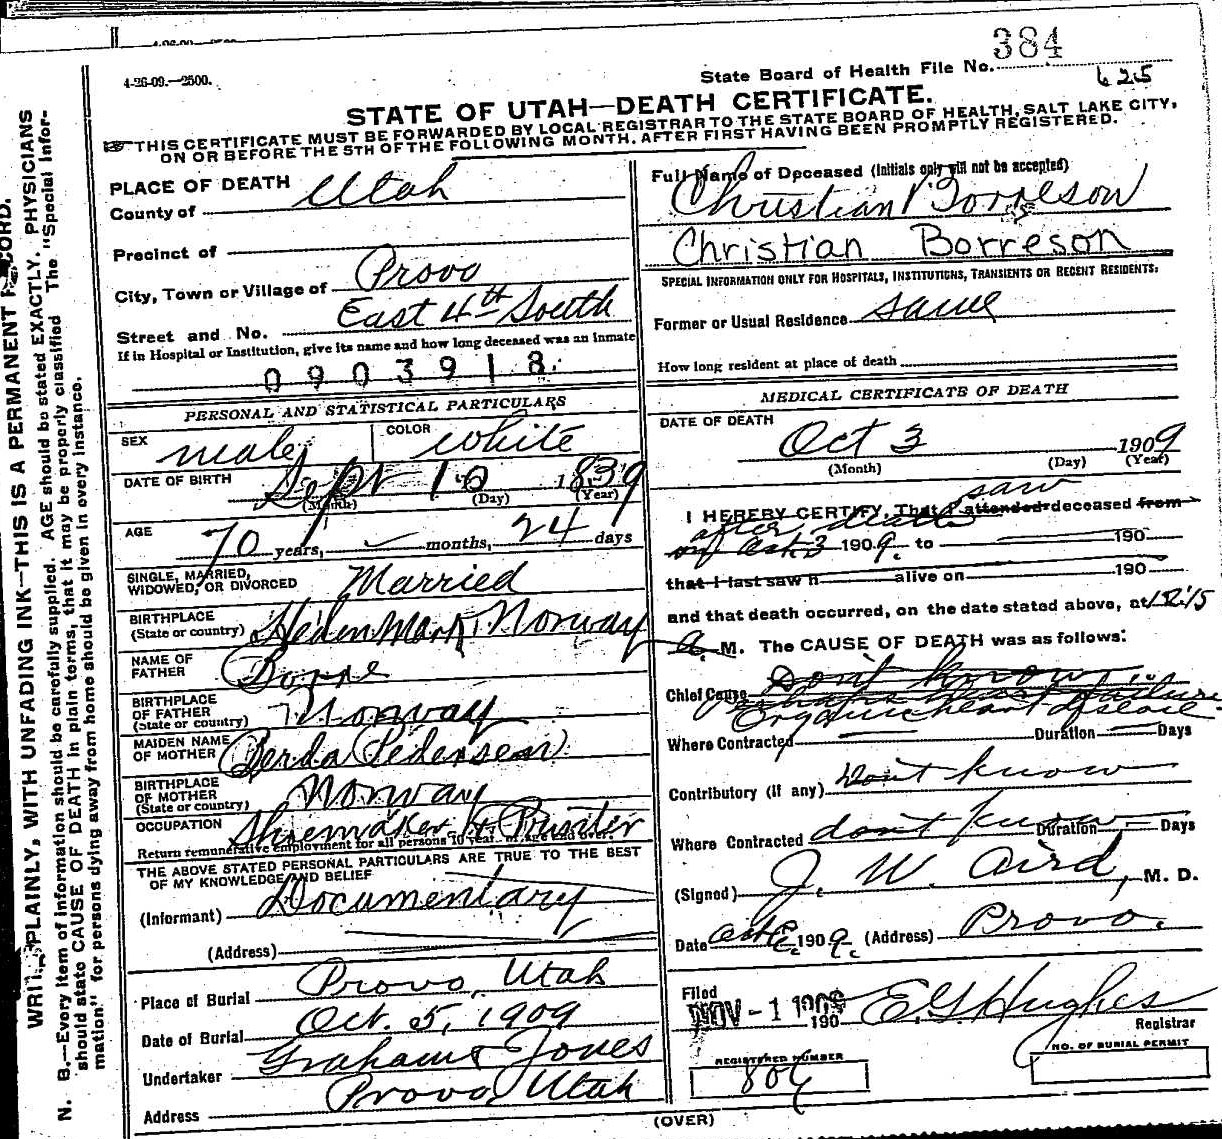 4-26-09.—2500.
State Board of Health File No. 384
625
STATE OF UTAH—DEATH CERTIFICATE.
THIS CERTIFICATE MUST BE FORWARDED BY LOCAL REGISTRAR TO THE STATE BOARD OF HEALTH, SALT LAKE CITY,
ON OR BEFORE THE 5TH OF THE FOLLOWING MONTH, AFTER FIRST HAVING BEEN PROMPTLY REGISTERED.
WRITE PLAINLY, WITH UNFADING INK—THIS IS A PERMANENT RECORD.
N. B.—Every item of information should be carefully supplied. AGE should be stated EXACTLY. PHYSICIANS
should state CAUSE OF DEATH in plain terms, that it may be properly classified The "Special Infor-
mation" for persons dying away from home should be given in every instance.
PLACE OF DEATH
County of Utah
Precinct of
City, Town or Village of Provo
Street and No. East 4th South
If in Hospital or Institution, give its name and how long deceased was an inmate
0903918.
PERSONAL AND STATISTICAL PARTICULARS
SEX male COLOR white
DATE OF BIRTH Sept 10 1839
(Month) (Day) (Year)
AGE 70 years, months, 24 days
SINGLE, MARRIED,
WIDOWED, OR DIVORCED Married
BIRTHPLACE
(State or country) Heden Mark, Norway
NAME OF
FATHER Borre
BIRTHPLACE
OF FATHER
(State or country) Norway
MAIDEN NAME
OF MOTHER Berda Pedersen
BIRTHPLACE
OF MOTHER
(State or country) Norway
OCCUPATION Shoemaker & Painter
Return remunerative employment for all persons 10 years of age and over.
THE ABOVE STATED PERSONAL PARTICULARS ARE TRUE TO THE BEST
OF MY KNOWLEDGE AND BELIEF
(Informant) Documentary
(Address)
Place of Burial Provo, Utah
Date of Burial Oct. 5, 1909
Undertaker Graham & Jones
Address Provo Utah
Full Name of Deceased (Initials only will not be accepted)
Christian Borreson
Christian Borreson
SPECIAL INFORMATION ONLY FOR HOSPITALS, INSTITUTIONS, TRANSIENTS OR RECENT RESIDENTS:
Former or Usual Residence same
How long resident at place of death
MEDICAL CERTIFICATE OF DEATH
DATE OF DEATH Oct 3 1909
(Month) (Day) (Year)
saw
I HEREBY CERTIFY, That I attended deceased from
after death
on Oct. 3 1909. to 190
that I last saw h alive on 190
and that death occurred, on the date stated above, at 12:15
a. M. The CAUSE OF DEATH was as follows:
Don't know
Chief Cause Perhaps heart failure
Organic heart disease
Where Contracted Duration Days
Contributory (if any) Don't know
Where Contracted don't know Duration Days
(Signed) J. W. Aird, M. D.
Date Oct 1909. (Address) Provo.
Filed
NOV - 1 1909 190 E G Hughes
Registrar
REGISTERED NUMBER
NO. OF BURIAL PERMIT
(OVER)